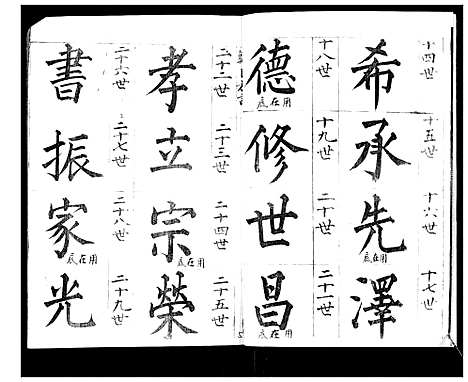 十四世 十五世 十六世 十七世
希承先澤
用在底
十八世 十九世 二十世 二十一世
德修世昌
用在底
用在底
二十二世 二十三世 二十四世 二十五世
孝立宗榮
用在底
二十六世 二十七世 二十八世 二十九世
書振家光
用在底